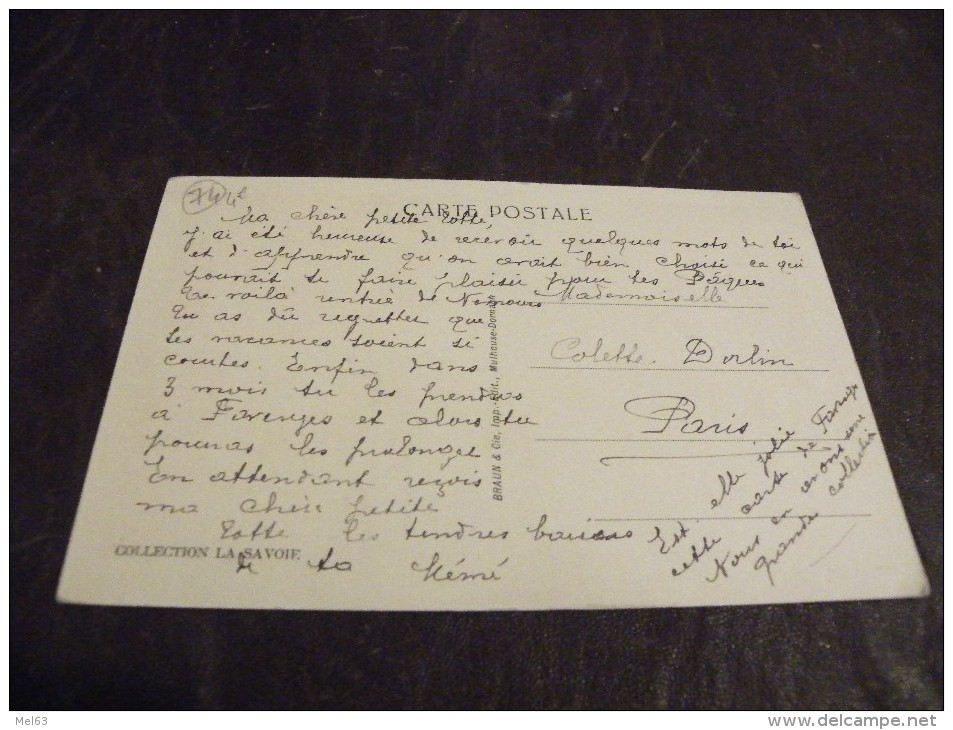 CARTE POSTALE
Ma chère petite Cotte,
J'ai été heureuse de recevoir quelques mots de toi
et d'apprendre qu'on avait bien choisi ce qui
pourait te faire plaisir pour tes Pâques
Te voilà rentrée de Nemours
Tu as dû regretter que
tes vacances soient si
courtes. Enfin dans
3 mois tu les prendras
à Faverges et alors tu
pouras les prolonger
En attendant reçois
ma chère petite
Cotte les tendres baisers
de ta Mémé
COLLECTION LA SAVOIE
BRAUN & Cie, Imp.-Edit., Mulhouse-Dornach
Mademoiselle
Colette Dorlin
Paris
Est-elle jolie
cette carte de Faverges
Nous en avons une
grande collection
Mel63
http://www.delcampe.net